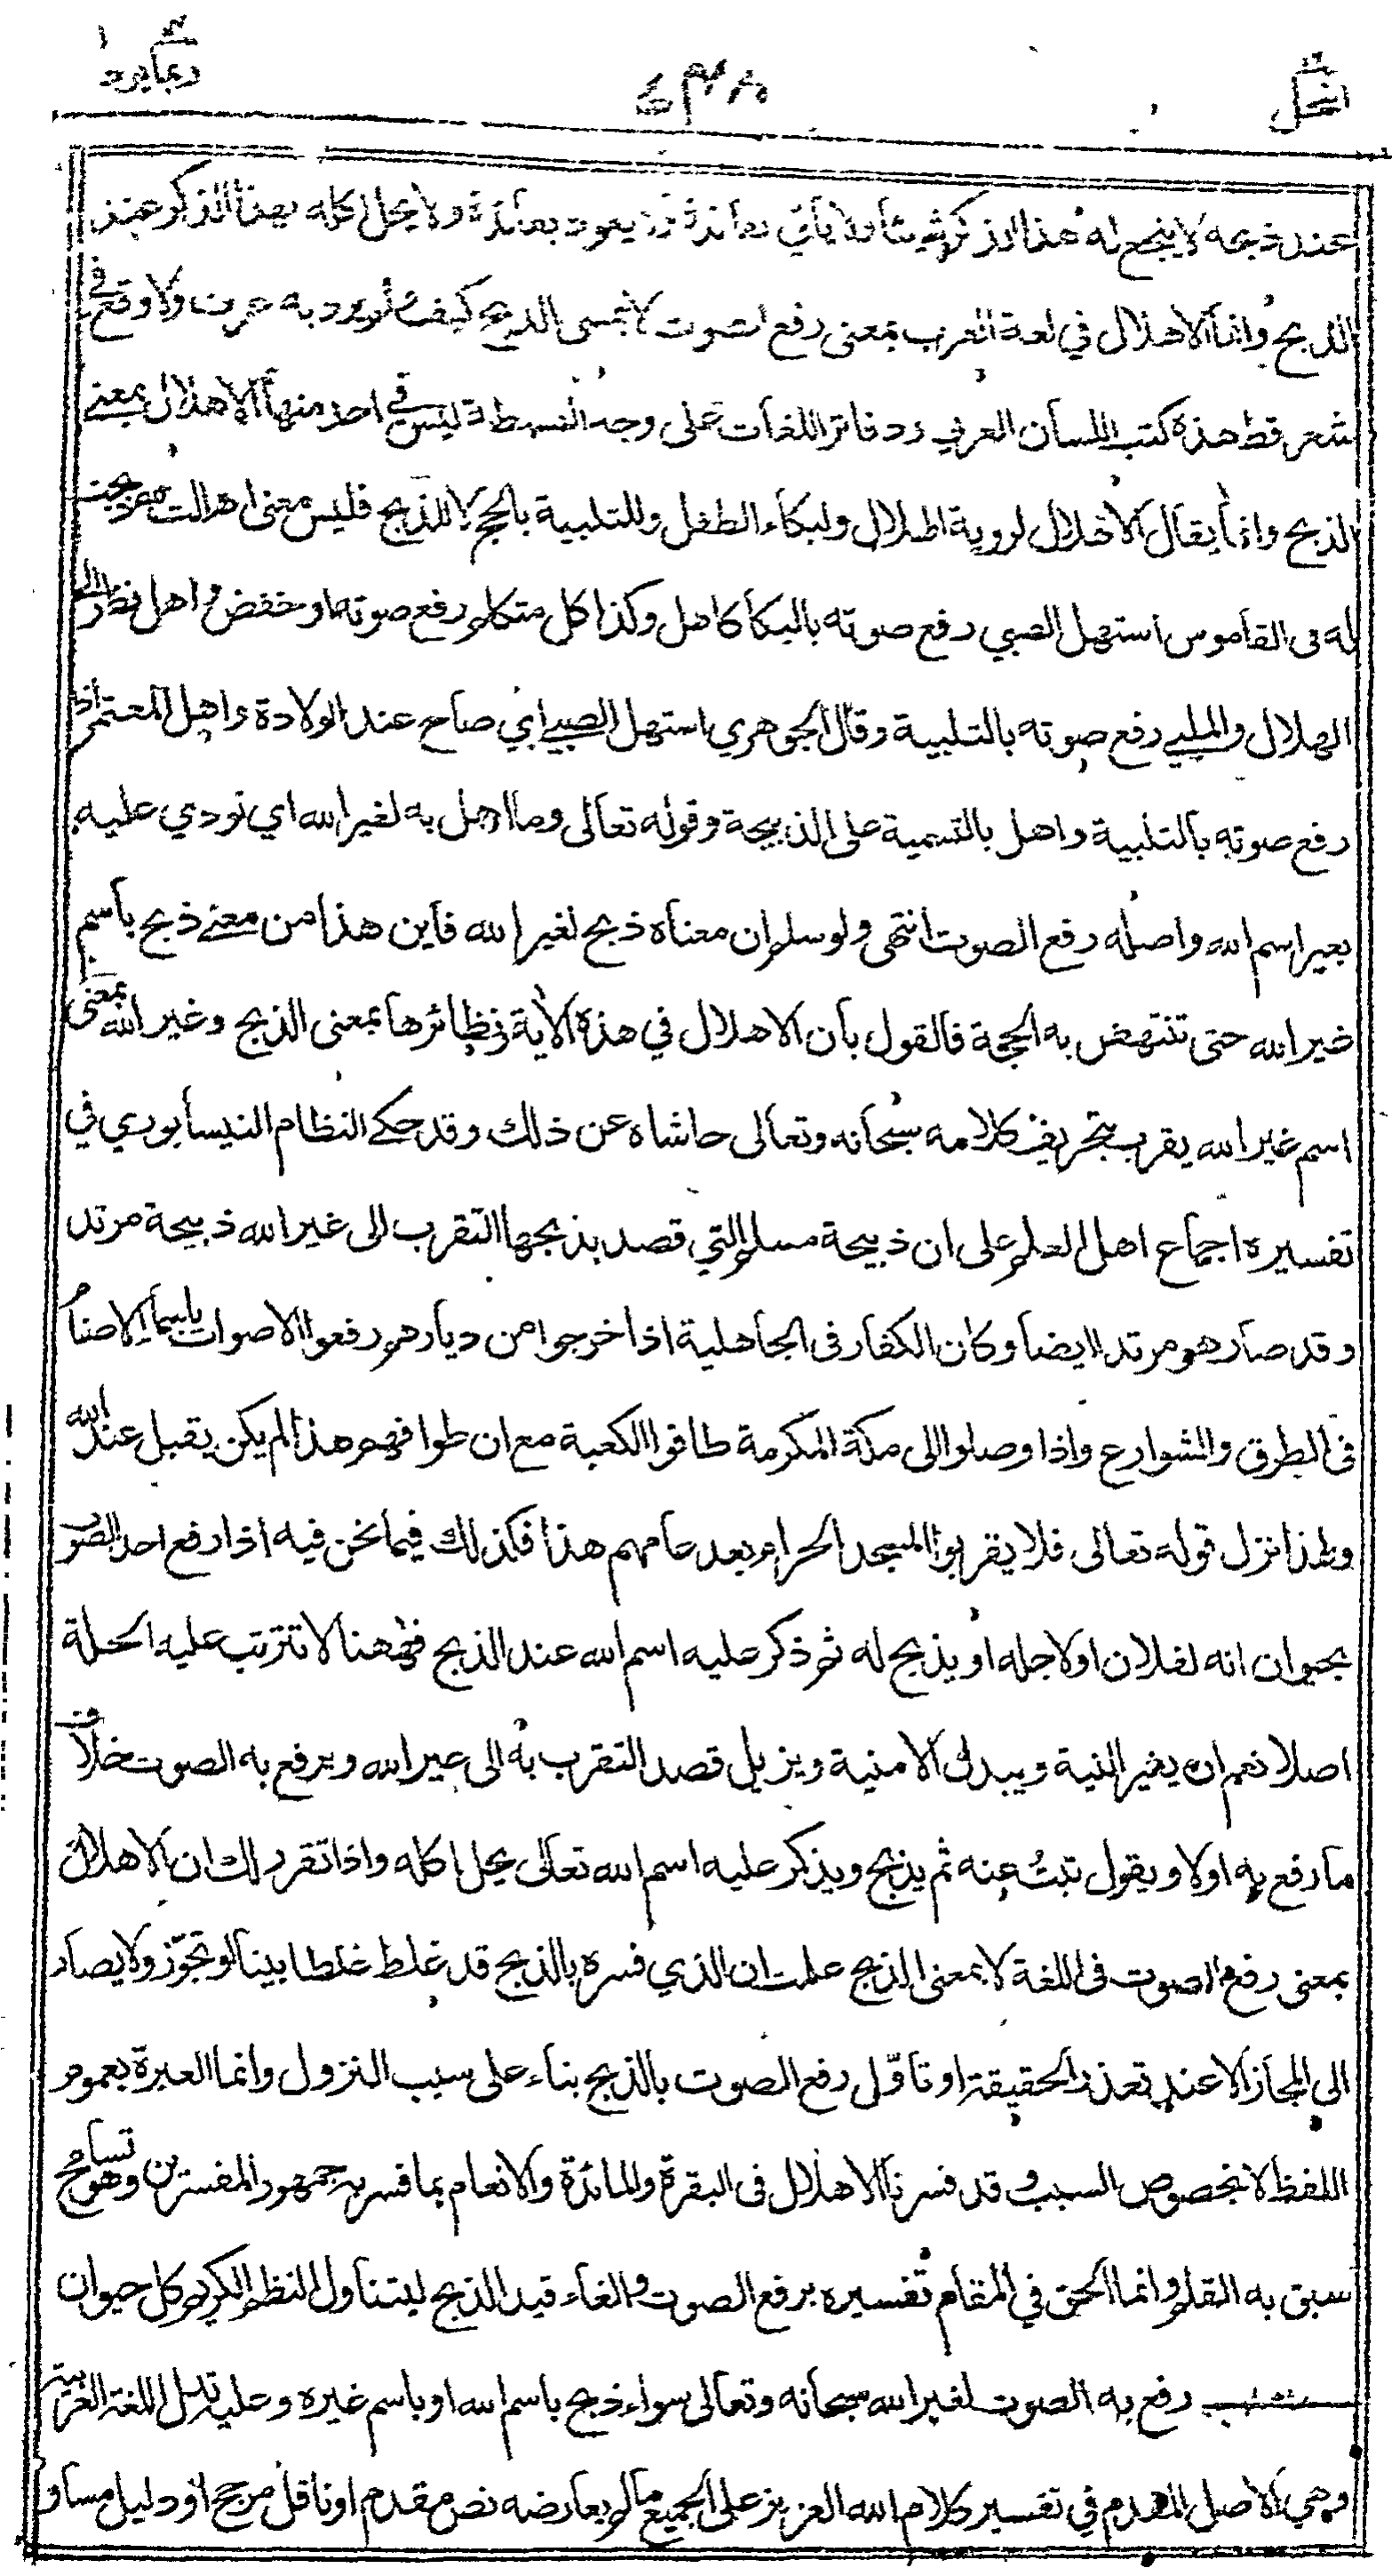 النحل ٦٣٨ ربما ١٤
عند ذبحه لا ينجع له هذا الذكر شيئا ولا يأتي بفائدة ولا يعود بعائدة ولا يحل اكله بهذا الذكر عند
الذبح وانما الاهلال في لغة العرب بمعنى رفع الصوت لا بمعنى الذبح كيف ولم يرد به عرف ولا وقع في
شعر قط هذه كتب اللسان العربي ودفاتر اللغات على وجه البسيطة ليس في احد منها الاهلال بمعنى
الذبح وانما يقال الاهلال لروية الهلال ولبكاء الطفل وللتلبية بالحج لا للذبح فليس معنى اهللت ذبحت
له فى القاموس استهل الصبي رفع صوته بالبكا كاهل وكذا كل متكلم رفع صوته او خفض واهل نظر الى
الهلال والملبي رفع صوته بالتلبية وقال الجوهري استهل الصبي اي صاح عند الولادة واهل المعتمر اذا
رفع صوته بالتلبية واهل بالتسمية على الذبيحة وقوله تعالى وما اهل به لغير الله اي نودي عليه
بغير اسم الله واصله رفع الصوت انتهى ولو سلم ان معناه ذبح لغير الله فأين هذا من معنى ذبح باسم
غير الله حتى تنتهض به الحجة فالقول بأن الاهلال في هذه الأية ونظائرها بمعنى الذبح وغير الله بمعنى
اسم غير الله يقرب بتحريف كلامه سبحانه وتعالى حاشاه عن ذلك وقد حكى النظام النيسابوري في
تفسيره اجماع اهل العلم على ان ذبيحة مسلم التي قصد بذبحها التقرب الى غير الله ذبيحة مرتد
وقد صار هو مرتدا ايضا وكان الكفار فى الجاهلية اذا خرجوا من ديارهم رفعوا الاصوات باسماء الاصنام
فى الطرق والشوارع واذا وصلوا الى مكة المكرمة طافوا الكعبة مع ان طوافهم هذا لم يكن يقبل عند الله
ولهذا نزل قوله تعالى فلا يقربوا المسجد الحرام بعد عامهم هذا فكذلك فيما نحن فيه اذا رفع احد الصوت
بحيوان انه لفلان او لاجله او يذبح له ثم ذكر عليه اسم الله عند الذبح فههنا لا تترتب عليه الحلة
اصلا نعم ان يغير النية ويبدل الامنية ويزيل قصد التقرب به الى غير الله ويرفع به الصوت خلاف
ما رفع به اولا ويقول تبت عنه ثم يذبح ويذكر عليه اسم الله تعالى يحل اكله واذا تقرر لك ان الاهلال
بمعنى رفع الصوت فى اللغة لا بمعنى الذبح علمت ان الذي فسره بالذبح قد غلط غلطا بينا او تجوّز ولا يصار
الى المجاز الا عند تعذر الحقيقة او تأوّل رفع الصوت بالذبح بناء على سبب النزول وانما العبرة بعموم
اللفظ لا بخصوص السبب وقد فسرنا الاهلال فى البقرة والمائدة والانعام بما فسر به جمهور المفسرين وهو تسامح
سبق به القلم وانما الحق في المقام تفسيره برفع الصوت والغاء قيد الذبح ليتناول النظم الكريم كل حيوان
رفع به الصوت لغير الله سبحانه وتعالى سواء ذبح باسم الله او باسم غيره وعليه تدل اللغة العربية
وهي الاصل المقدم في تفسير كلام الله العزيز على الجميع ما لم يعارضه نص مقدم او ناقل مرجح او دليل مساو